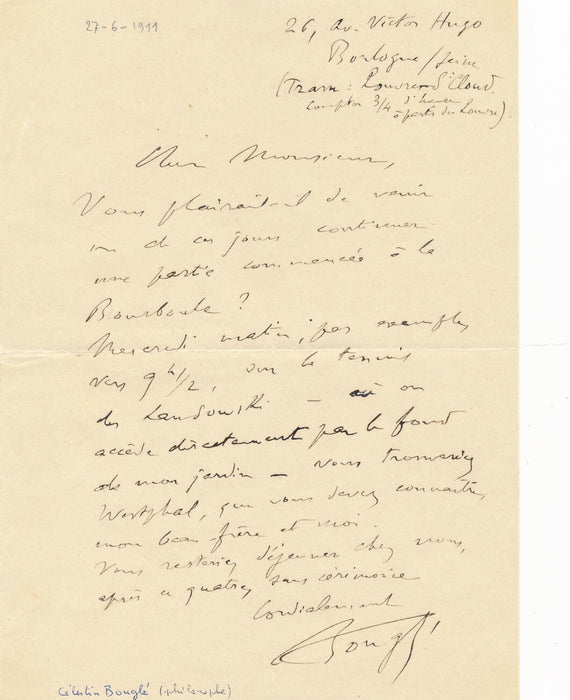 27-6-1911
26, Av. Victor Hugo
Boulogne/Seine
(Tram: Louvre-St Cloud.
compter 3/4 d'heure
à partir du Louvre).
Cher Monsieur,
Vous plairait-il de venir
un de ces jours continuer
une partie commencée à la
Bourboule?
Mercredi matin, par exemple,
vers 9 h/2, sur le tennis
des Landowski – où on
accède directement par le fond
de mon jardin – vous trouveriez
Westphal, que vous devez connaître,
mon beau-frère et moi.
Vous resteriez déjeuner chez nous,
après ce quatre, sans cérimonie
Cordialement
Bouglé
Célestin Bouglé (philosophe)